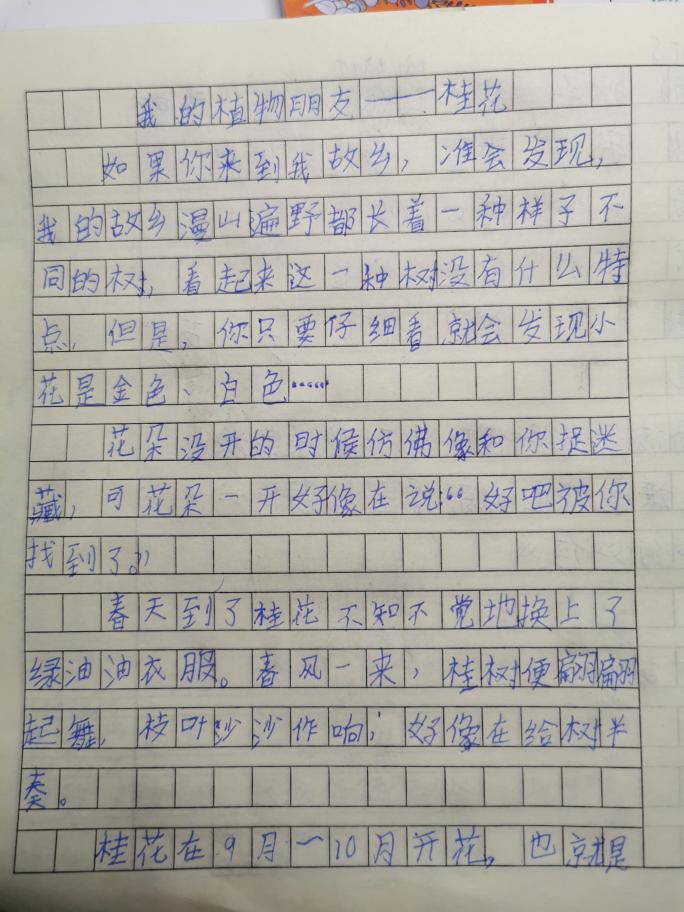 我的植物朋友——桂花
如果你来到我故乡，准会发现，
我的故乡漫山遍野都长着一种样子不
同的树，看起来这一种树没有什么特
点，但是，你只要仔细看就会发现小
花是金色、白色……
花朵没开的时候仿佛像和你捉迷
藏，可花朵一开好像在说：“好吧被你
找到了。”
春天到了桂花不知不觉地换上了
绿油油衣服。春风一来，桂树便翩翩
起舞，枝叶沙沙作响；好像在给树半
奏。
桂花在9月～10月开花，也就是